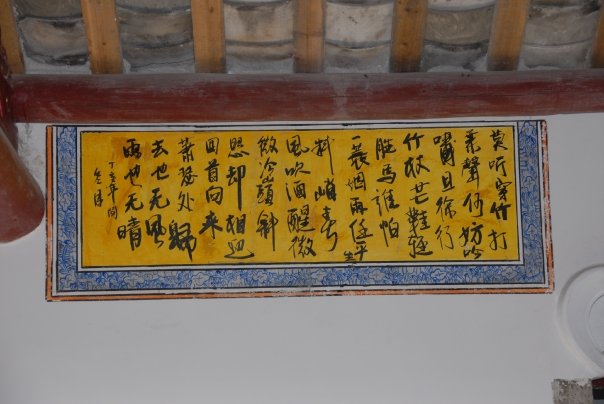 莫听穿林打
葉声何妨吟
啸且徐行
竹杖芒鞋轻
胜马谁怕
一蓑烟雨任平生
料峭春
风吹酒醒微
微冷頭斜
照却相迎
回首向来
萧瑟处歸
去也无风
雨也无晴
丁亥年间